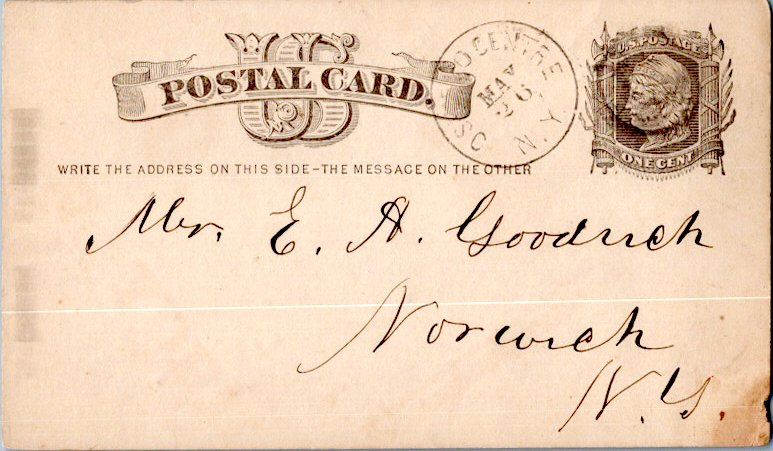 US
POSTAL CARD.
CENTRE
MAY
26
N.Y.
U.S. POSTAGE
ONE CENT
WRITE THE ADDRESS ON THIS SIDE-THE MESSAGE ON THE OTHER
Mr. E. A. Goodrich
Norwich
N.Y.